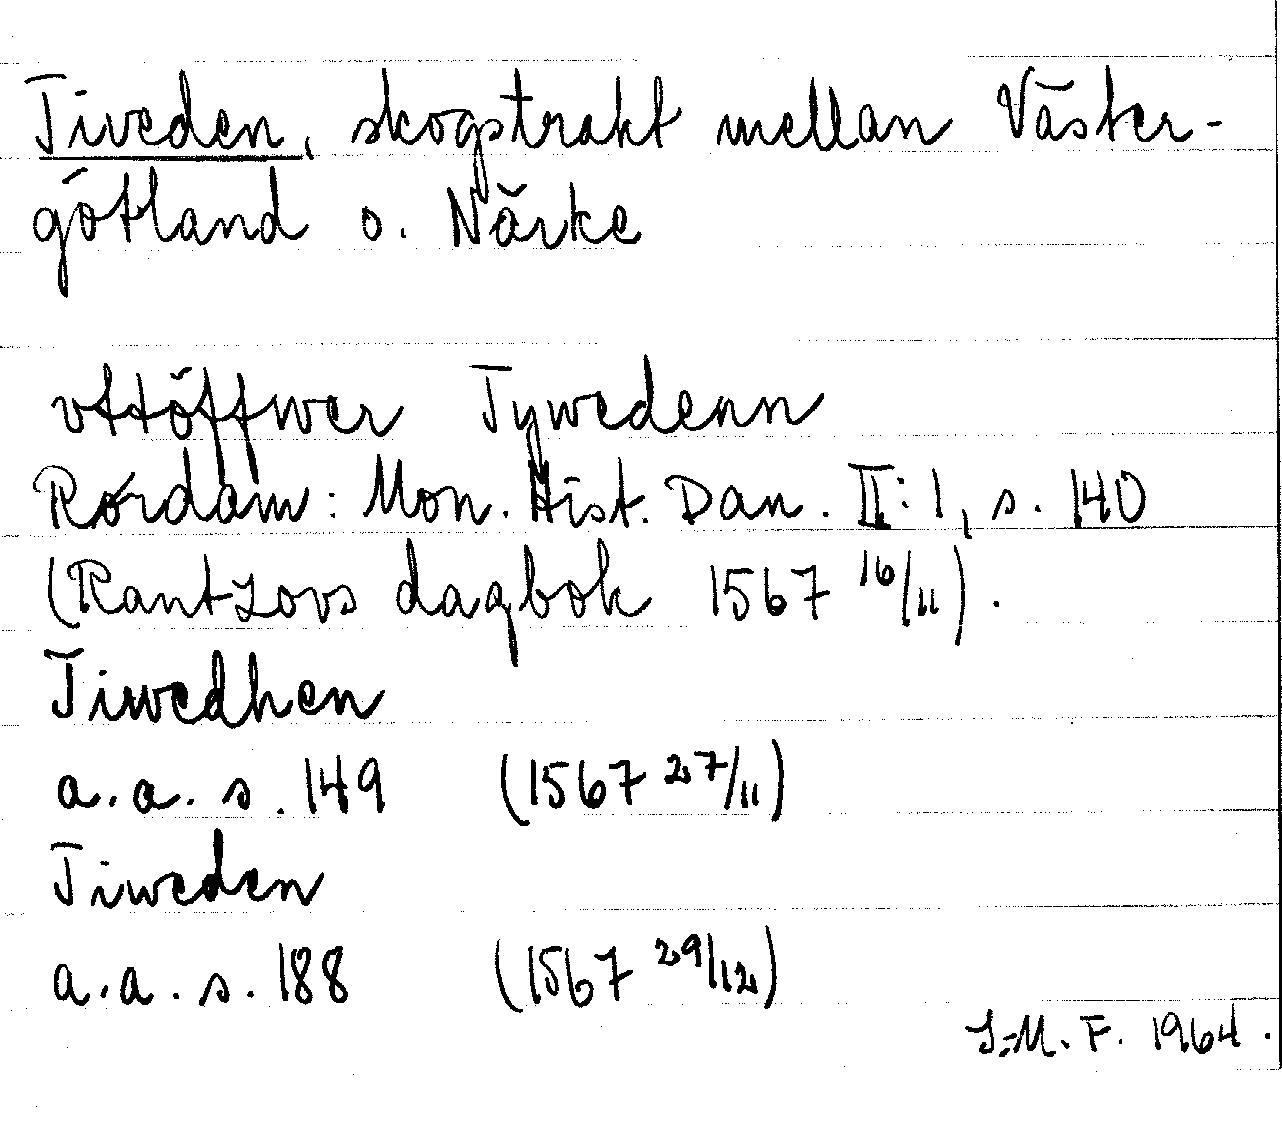 Tiveden, skogstrakt mellan Väster-
götland o. Närke
vttöffwer Tywedenn
Rørdam: Mon. Hist. Dan. II: 1, s. 140
(Rantzovs dagbok 1567 16/11).
Tiwedhen
a.a. s. 149 (1567 27/11)
Tiweden
a.a. s. 188 (1567 29/12)
I.-M. F. 1964.